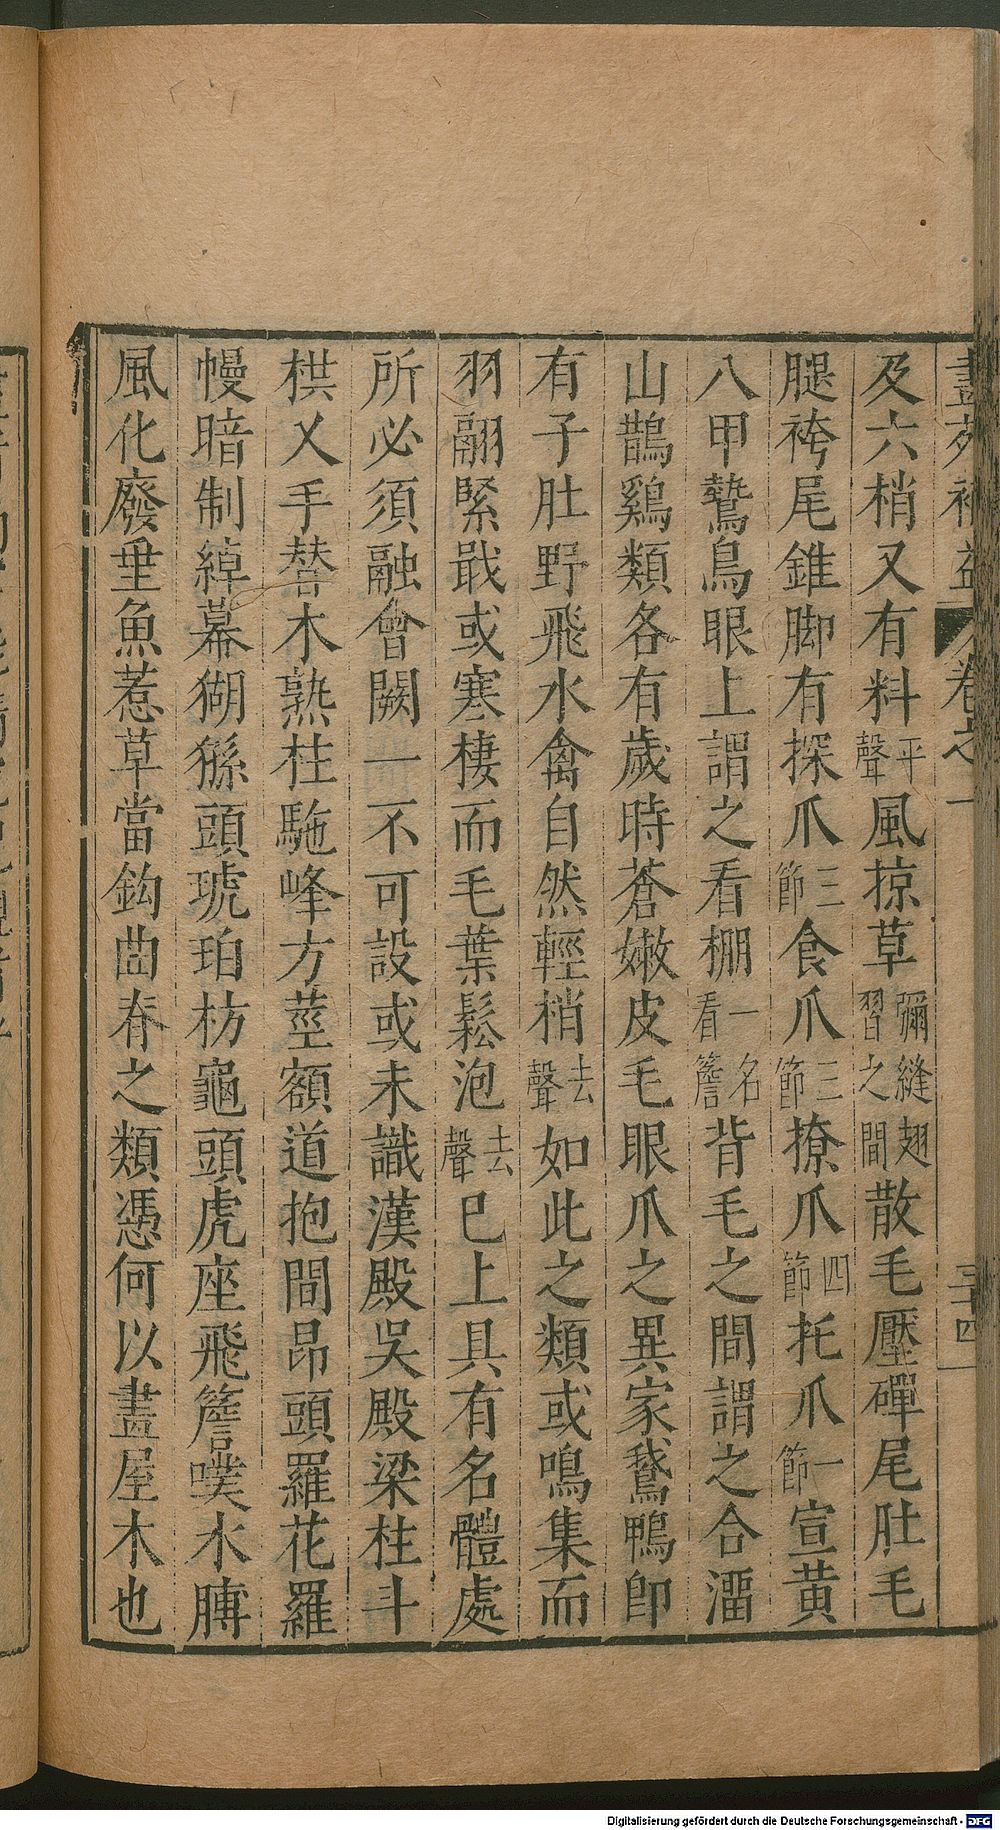 畫苑補益 卷之一 三十四
及六梢又有料平聲風掠草彌縫翅習之間散毛壓磾尾肚毛
腿袴尾錐脚有探爪三節食爪三節撩爪四節托爪一節宣黄
八甲鷙鳥眼上謂之看棚一名看簷背毛之間謂之合溜
山鵲鷄類各有歲時蒼嫩皮毛眼爪之異家鵞鴨即
有子肚野飛水禽自然輕梢去聲如此之類或鳴集而
羽翮緊戢或寒棲而毛葉鬆泡去聲已上具有名體處
所必須融會闕一不可設或未識漢殿吳殿梁柱斗
栱乂手替木熟柱駞峰方莖額道抱間昂頭羅花羅
幔暗制綽幕猢猻頭琥珀枋龜頭虎座飛簷噗水膊
風化廢垂魚惹草當鈎曲春之類憑何以畫屋木也
Digitalisierung gefördert durch die Deutsche Forschungsgemeinschaft - DFG